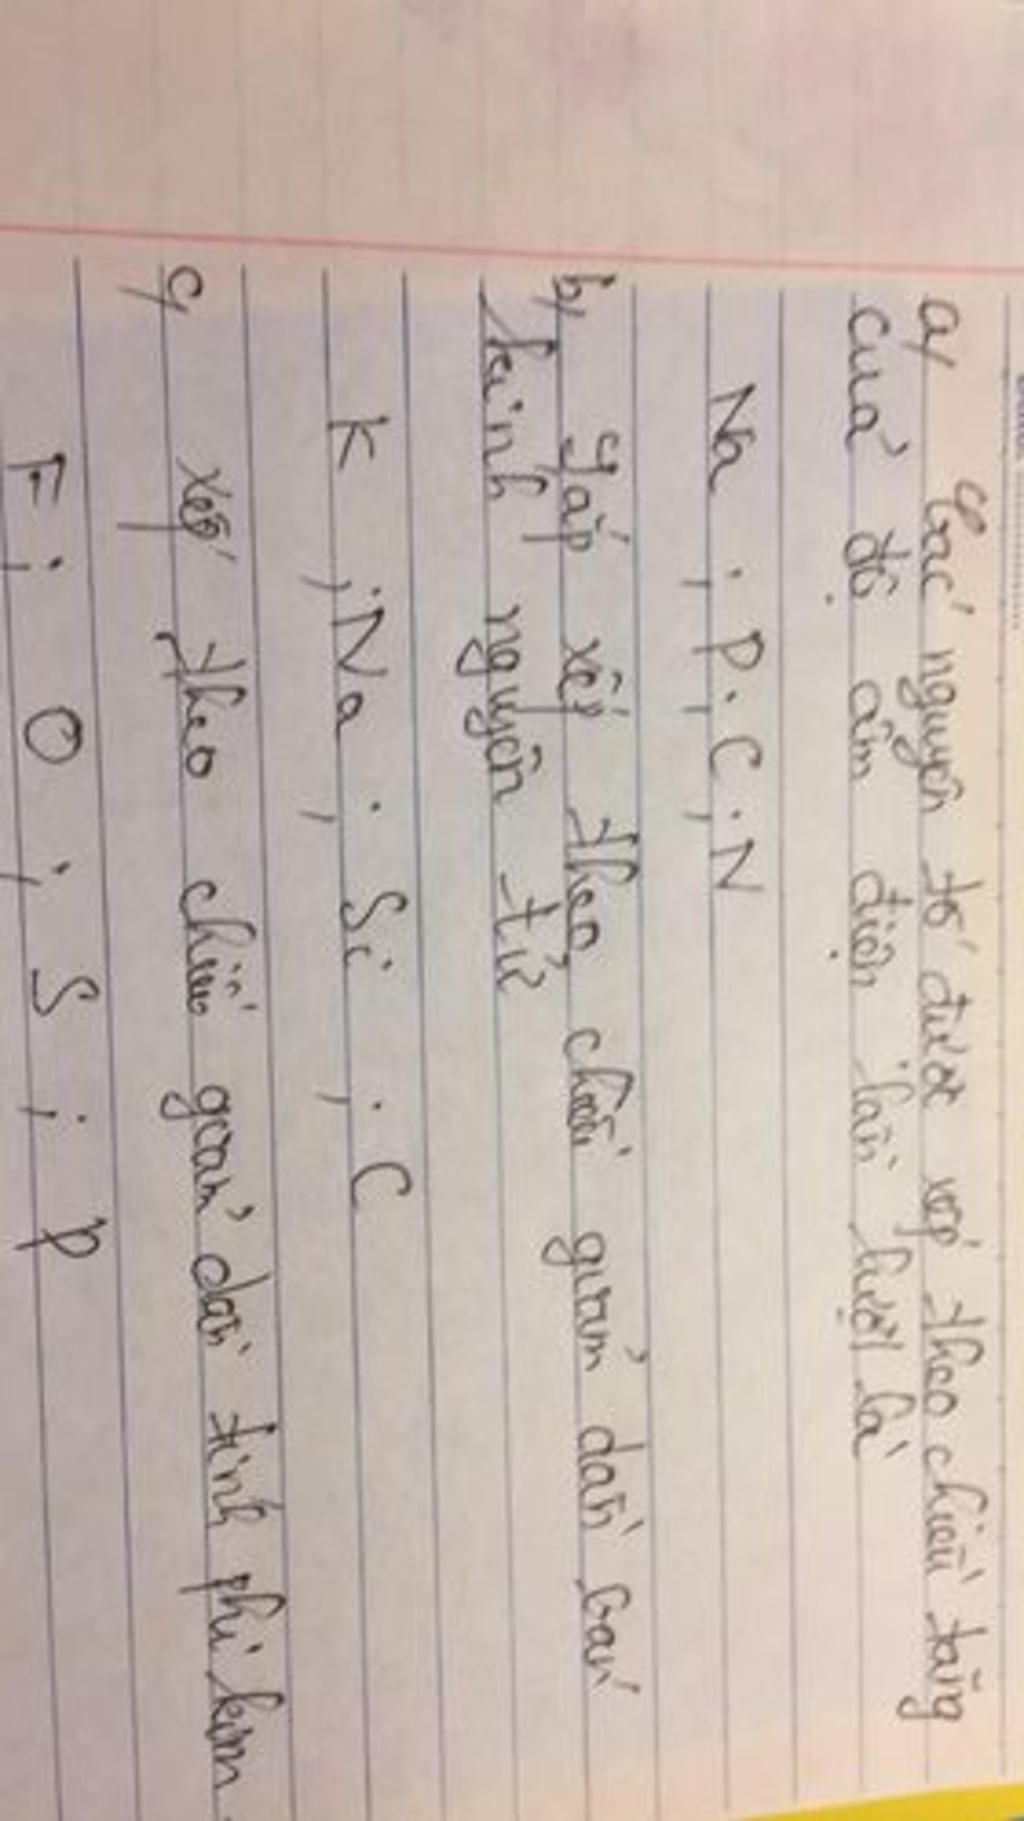 a, Các nguyên tố được xếp theo chiều tăng
của độ âm điện lần lượt là
Na ; P ; C ; N
b, Sắp xếp theo chiều giảm dần bán
kính nguyên tử
K ; Na ; Si ; C
c, xếp theo chiều giảm dần tính phi kim
F ; O ; S ; P